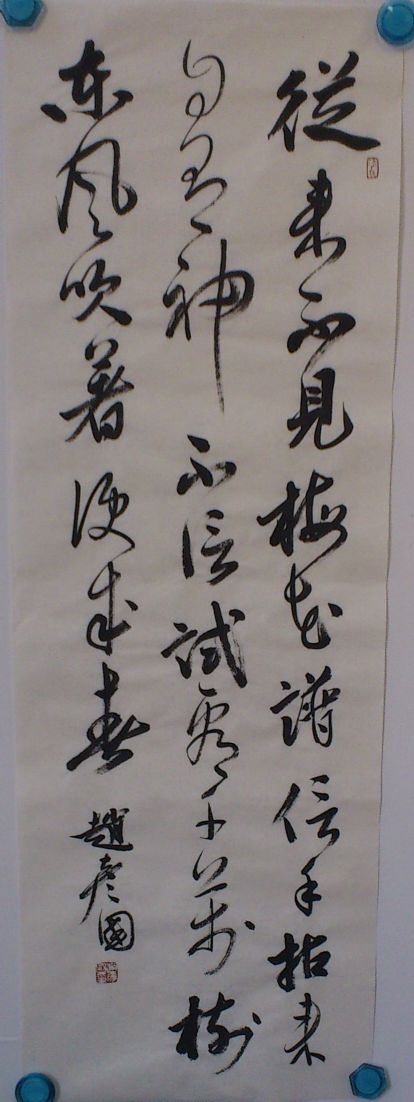 從来不見梅花譜信手拈来
自有神不信試看千萬树
东风吹著便成春
趙彦國